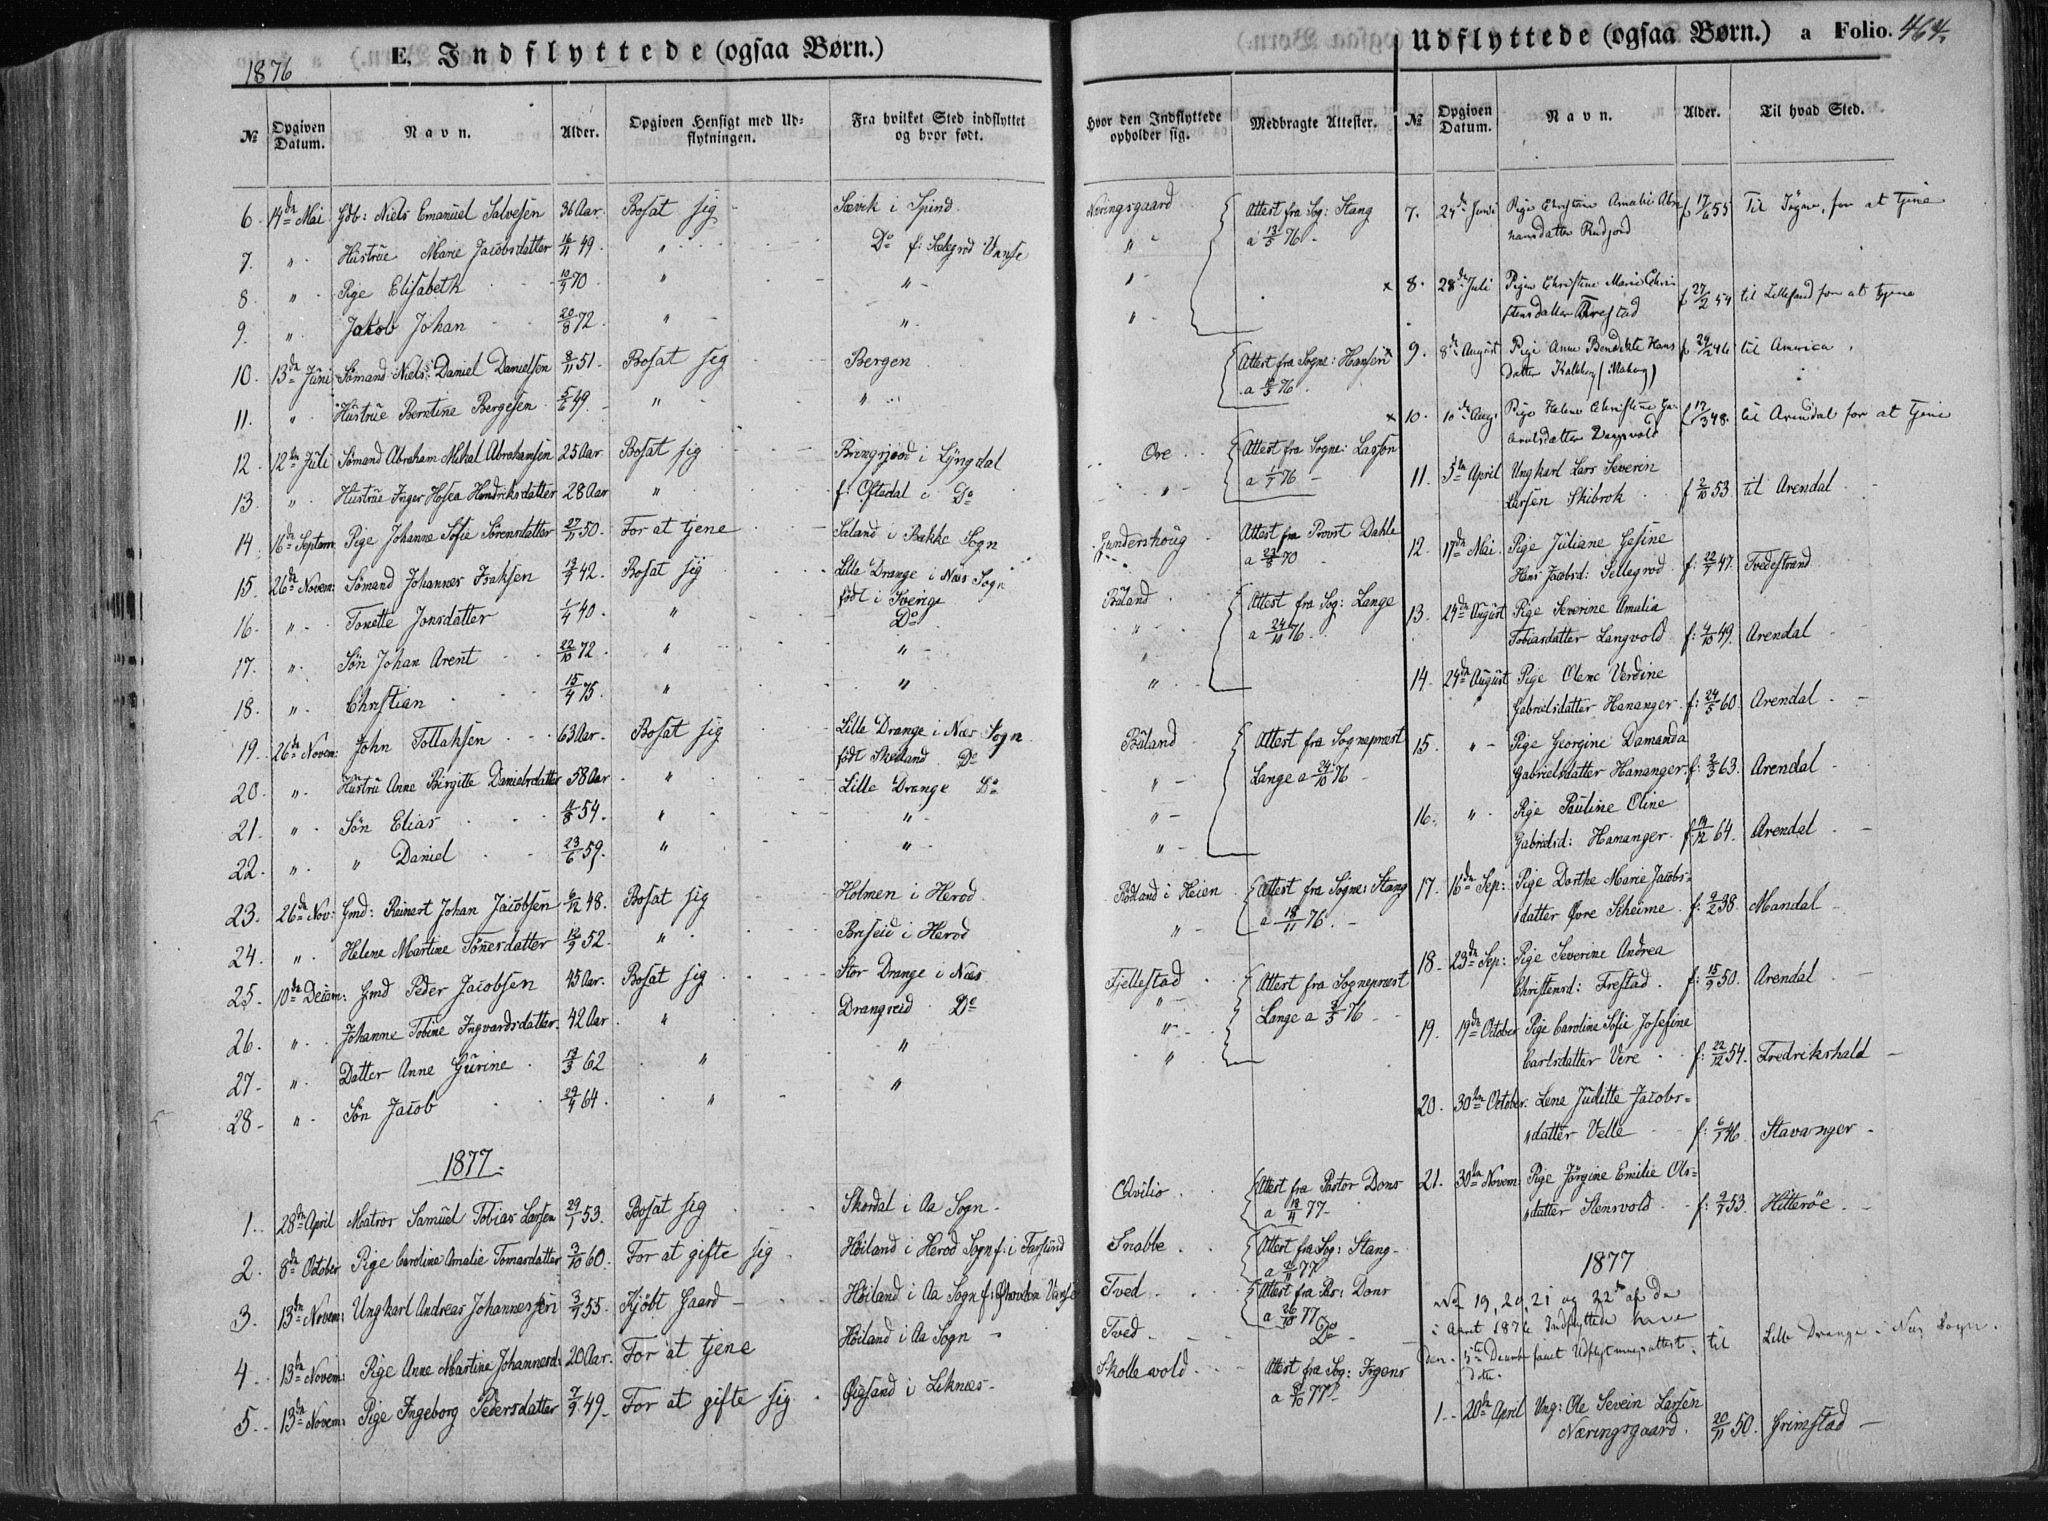 1876
E. Indflyttede (ogsaa Børn.)
№ Opgiven Datum. Navn. Alder. Opgiven Hensigt med Udflytningen. Fra hvilket Sted indflyttet og hvor født. Hvor den Indflyttede opholder sig. Medbragte Attester.
6. 14de Mai Gdb: Niels Emanuel Salvesen 36 Aar Bosat sig Sævik i Spind. Næringsgaard Attest fra Sog: Stang
7. " Hustrue Marie Jacobsdatter 49. " Do " a 76
8. " Pige Elisabeth 70 " " "
9. " Jakob Johan 20/8 72. " " "
10. 13de Juni Sømand Niels Daniel Danielsen 8/11 51. Bosat sig Bergen Attest fra Sogne: Hansen
11. " Hustrue Berntine Bergesen 5/6 49. " " a 76
12. 12te Juli Sømand Abraham Mikal Abrahamsen 25 Aar Bosat sig i Lyngdal Ore Attest fra Sogne: Lassen
13. " Hustrue Inger Hosea Hendriksdatter 28 Aar " f: Oftedal i Do " a 1/7 76
14. 16de Septem Pige Johanne Sofie Sørensdatter 27/11 50. For at tjene Saland i Bakke Sogn Gundershoug Attest fra Provst Dahle
15. 26de Novem: Sømand Johannes Isaksen 42. Bosat sig Lille Drange i Næs Sogn født i Sverige Båland Attest fra Sog: Lange
16. " Tonette Jonsdatter 1/4 40. " Do " a 24/10 76.
17. " Søn Johan Arent 22/10 72. " " "
18. " Christian 15/4 75. " " "
19. 26de Novem: John Tollaksen 63 Aar. Bosat sig Lille Drange i Næs Sogn født Do Båland Attest fra Sognepræst
20. " Hustru Anne Birgitte Danielsdatter 58 Aar " Lille Drange Do " Lange a 24/10 76
21. " Søn Elias 54. " " "
22. " " Daniel 23/6 59. " " "
23. 26de Nov: Gmd: Reinert Johan Jacobsen 6/12 48. Bosat sig Holmen i Herod Rødland i Heien Attest fra Sogne: Stang
24. " Helene Martine Tønnesdatter 52. " Briseid i Herod " a 18/11 76.
25. 10de Decem: Gmd Peder Jacobsen 45 Aar. Bosat sig Stor Drange i Næs Fjellestad Attest fra Sognepræst
26. " Johanne Tobine Ingvardsdatter 42 Aar " Drangeid Do " Lange a 76
27. " Datter Anne Gurine 62 " " "
28. " Søn Jacob 29/4 64. " " "
1877
1. 28de April Matros Samuel Tobias Larsen 29/1 53. Bosat sig Skordal i Aa Sogn Qvilio Attest fra Pastor Dons a 77
2. 8de October Pige Caroline Amalie Tomasdatter 60. For at gifte sig Høiland i Herod Sogn f: i Farsund Snabbe Attest fra Sog: Stang a 77
3. 13de Novem: Ungkarl Andreas Johannessen 55. Kjøbt Gaard Høiland i Aa Sogn f: Vanse Tved Attest fra Pas: Dons a 26/10 77
4. 13de Novem: Pige Anne Martine Johannesd: 20 Aar. For at tjene Høiland i Aa Sogn Tved Do
5. 13de Novem: Pige Ingeborg Pedersdatter 49. For at gifte sig Øigsand i Liknes Skollevold Attest fra Sog: Irgens a 77
Udflyttede (ogsaa Børn.) a Folio. 464.
№ Opgiven Datum. Navn. Alder. Til hvad Sted.
7. 24de Juni Pige Christine Amalie Abrahamsdatter Rudjord f 17/6 55 til Søgne, for at tjene
8. 28de Juli Pige Christine Marie Christensdatter Frestad f 27/2 54 til Lillesand for at tjene
9. 8de August Pige Anne Bendikte Hansdatter f 46 til America.
10. 10de Aug: Pige Helene Christine f 17/3 48. til Arendal for at tjene
11. 5te April Ungkarl Lars Severin Larsen Skibrok f 2/10 53. til Arendal
12. 17de Mai Pige Juliane Gesine Hans Jacobsd: Sellegrod f: 22/7 47. Tvedestrand
13. 24de August Pige Severine Amalia Tobiasdatter Langvold f: 4/10 49. Arendal
14. 24de August Pige Olene Verdine Gabrielsdatter Hananger f: 24/5 60. Arendal
15. " Pige Georgine Damanda Gabrielsdatter Hananger f: 63. Arendal
16. " Pige Pauline Oline Gabrielsd: Hananger f 14/12 64. Arendal
17. 16de Sep: Pige Dorthe Marie Jacobsdatter Øvre Skeime f: 9/2 38. Mandal
18. 23de Sep: Pige Severine Andrea Christensd: Frestad f: 50. Arendal
19. 19de October Pige Caroline Sofie Josefine Carlsdatter Vere f: 22/12 54. Fredrikshald
20. 30te October Lene Juditte Jacobsdatter Velle f: 46. Stavanger
21. 30te Novem: Pige Jørgine Emilie Olsdatter Stensvold f: 53. Hitterøe
1877
No 19, 20, 21 og 22 af de
i Aaret 1876 Indflyttede have
den 5te Decmber faaet Udflytningsattest til Lille Drange i Næs Sogn.
1. 20de April Ung: Ole Severin Larsen Næringsgaard 20/11 50. Grimstad